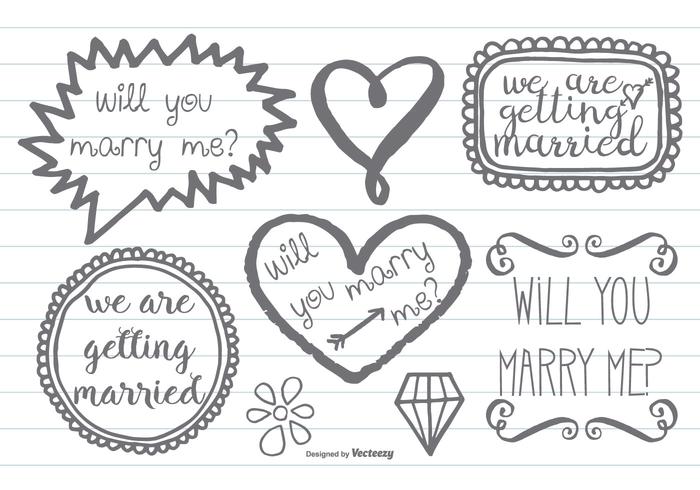 will you
marry me?
we are
getting
married
will
you marry
me?
we are
getting
married
WILL YOU
MARRY ME?
Designed by Vecteezy